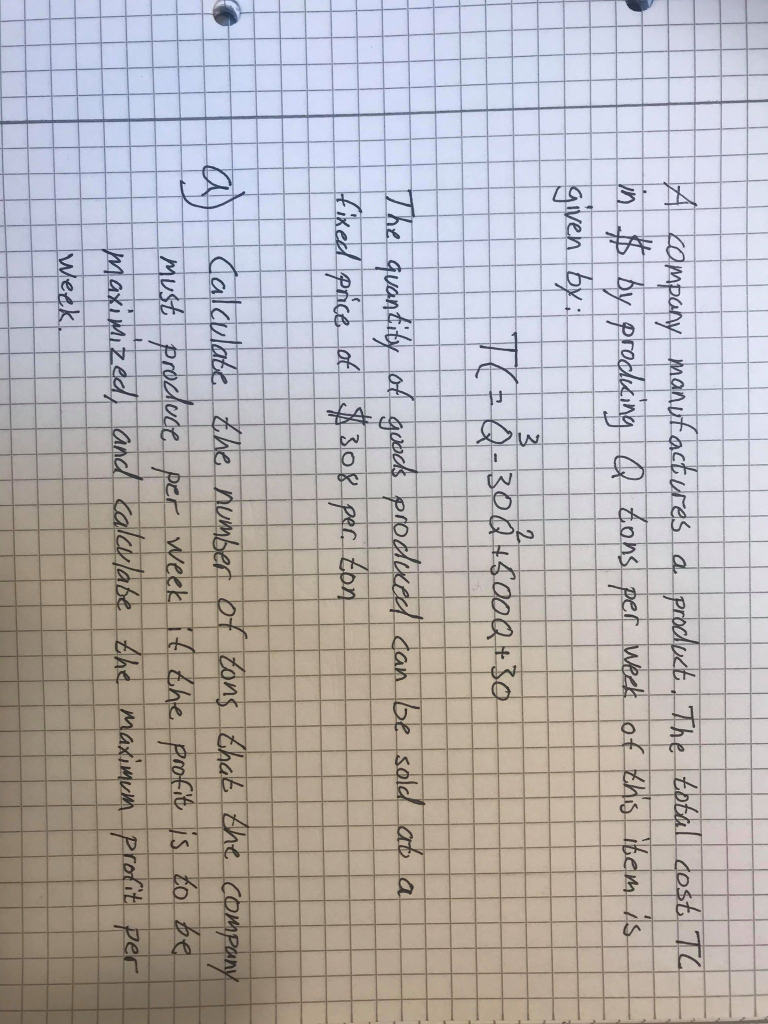 A company manufactures a product. The total cost TC
in $ by producing Q tons per week of this item is
given by:
TC = Q³ - 30Q² + 500Q + 30
The quantity of goods produced can be sold at a
fixed price of $308 per ton
a) Calculate the number of tons that the company
must produce per week if the profit is to be
maximized, and calculate the maximum profit per
week.